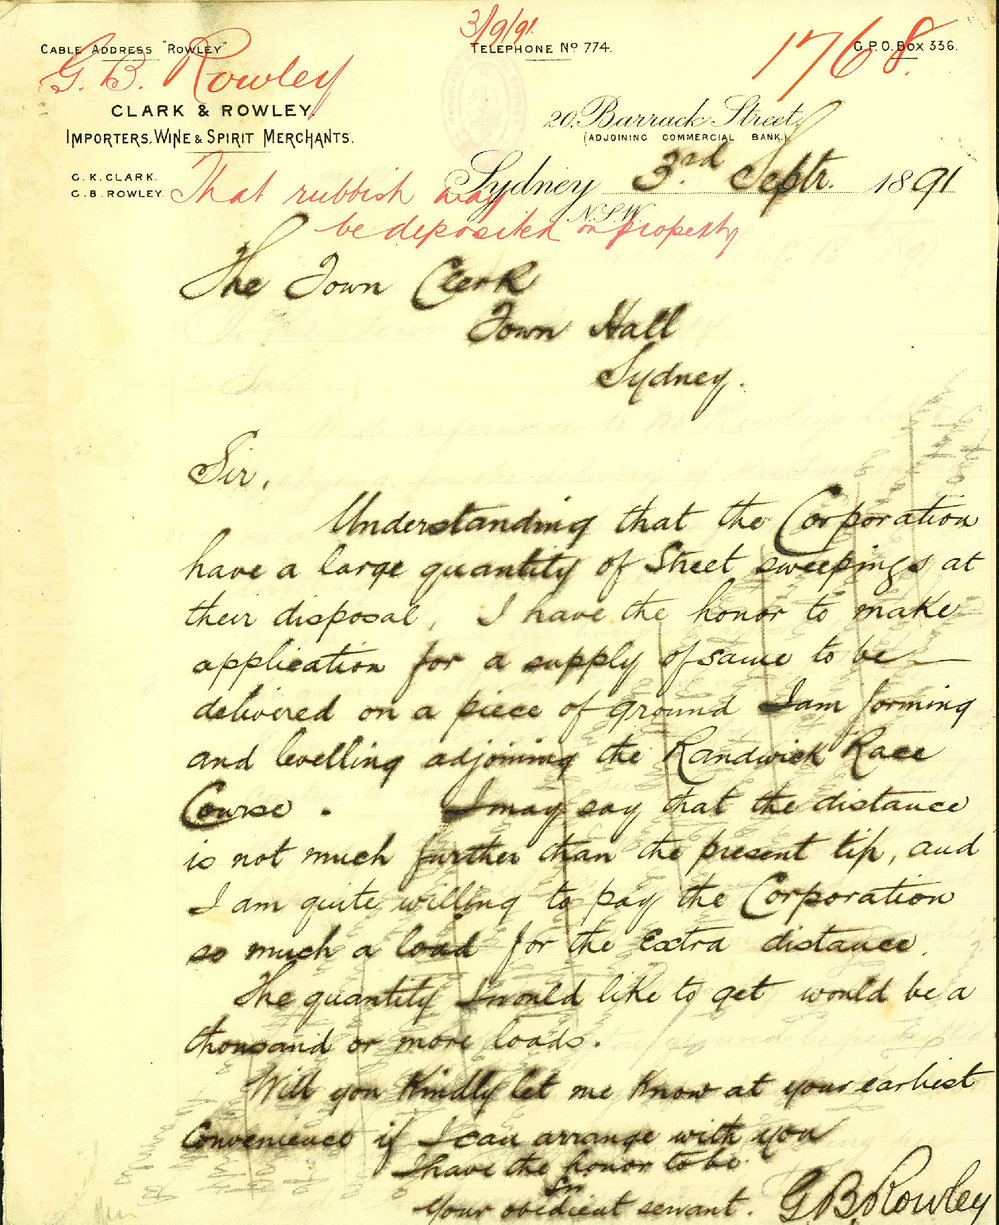 3/9/91
CABLE ADDRESS "ROWLEY"
TELEPHONE No 774.
G.P.O. BOX 336.
1768.
G. B. Rowley
CLARK & ROWLEY,
IMPORTERS, WINE & SPIRIT MERCHANTS.
20, Barrack Street,
(ADJOINING COMMERCIAL BANK.)
C. K. CLARK.
G. B. ROWLEY.
Sydney 3rd Septr. 1891
N.S.W.
That rubbish may
be deposited on property
The Town Clerk
Town Hall
Sydney.
Sir,
Understanding that the Corporation
have a large quantity of Street sweepings at
their disposal, I have the honor to make
application for a supply of same to be
delivered on a piece of ground I am forming
and levelling adjoining the Randwick Race
Course. I may say that the distance
is not much further than the present tip, and
I am quite willing to pay the Corporation
so much a load for the Extra distance.
The quantity I would like to get would be a
thousand or more loads.
Will you Kindly let me Know at your earliest
Convenience if I can arrange with you
I have the honor to be
Sir
Your obedient servant. G B Rowley